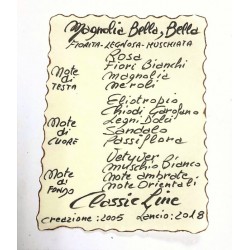 Magnolia Bella, Bella
FIORITA-LEGNOSA-MUSCHIATA
Rosa
Note Fiori Bianchi
DI magnolia
TESTA neroli
Eliotropio
Note Chiodi Garofano
DI Legni Dolci
CUORE Sandalo
Passiflora
Note Vetyver
DI muschio Bianco
FONDO note ambrate
note Orientali
Classic Line
creazione: 2005 Lancio: 2018